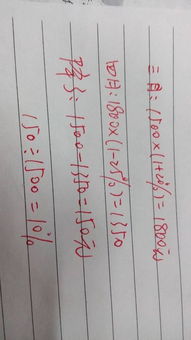 三月:1500×(1+20%)=1800(元)
四月:1800×(1-25%)=1350
降了:1500-1350=150(元)
150÷1500=10%